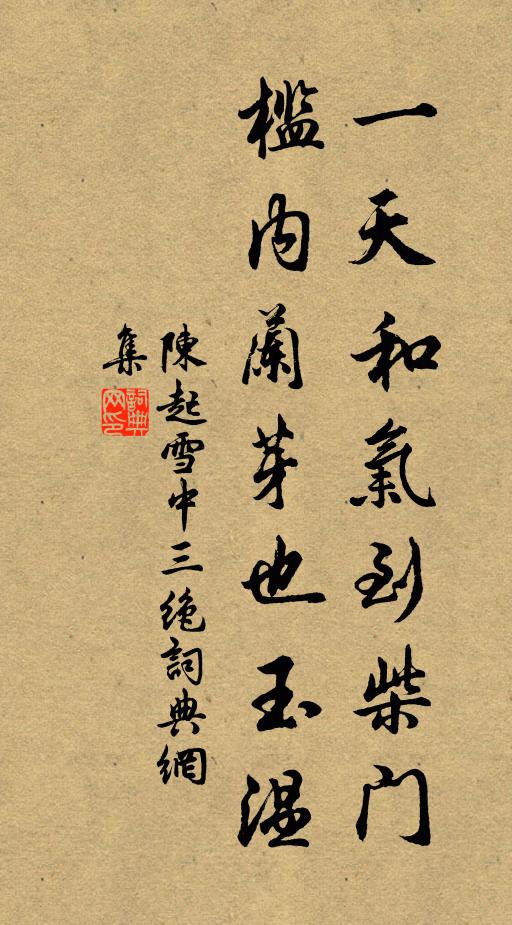 一天和氣到柴门
檻内蘭芽也玉温
陳起雪中三絶詞典網
集
詞典网印